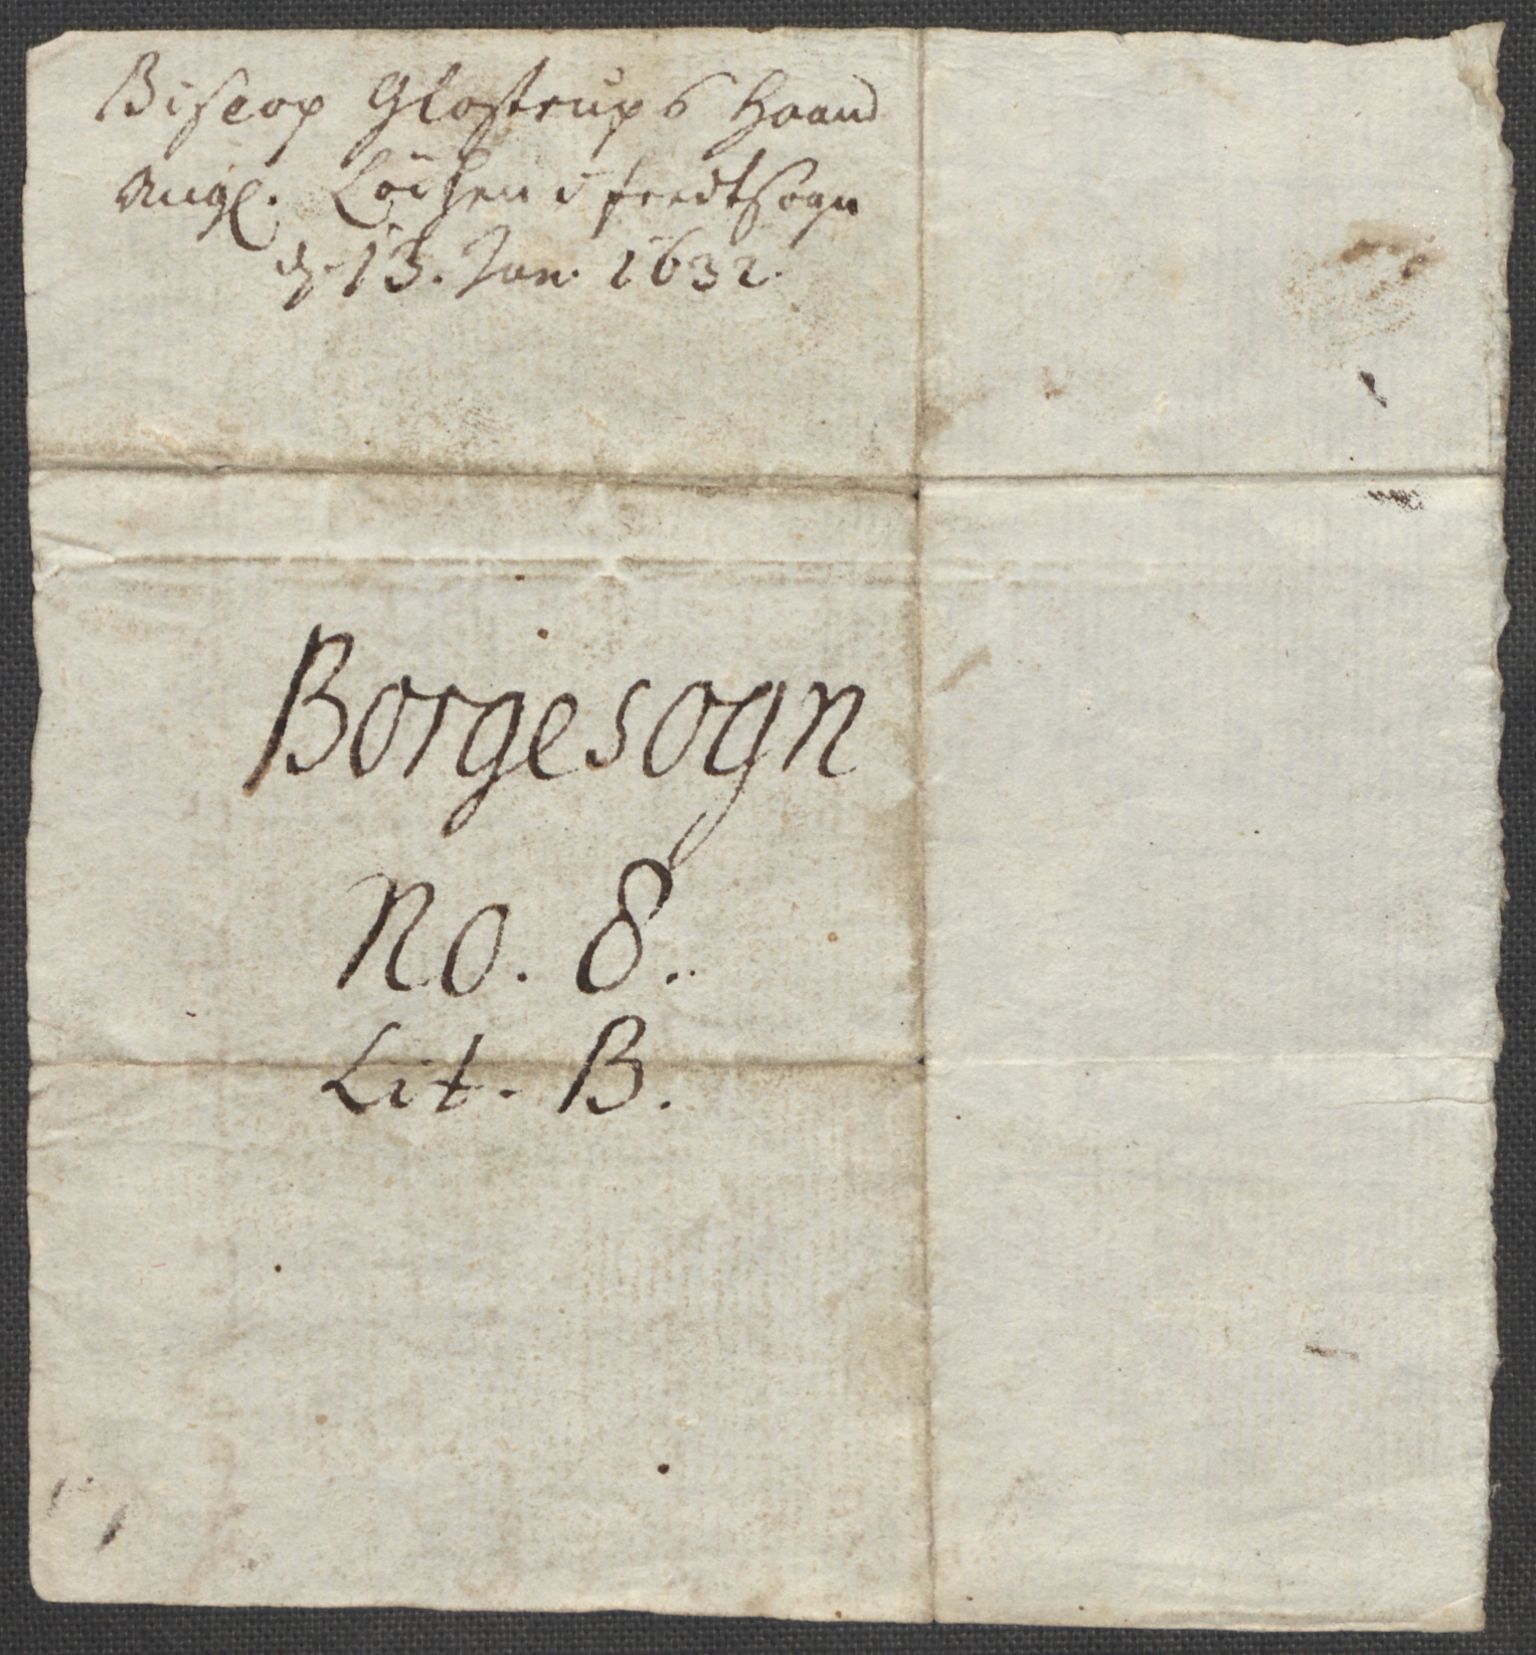 Biscop Glostrups Haand
Angl. Löchen i feedtSogn
d. 13. Jan. 1632.
Borgesogn
No. 8.
Lit. B.